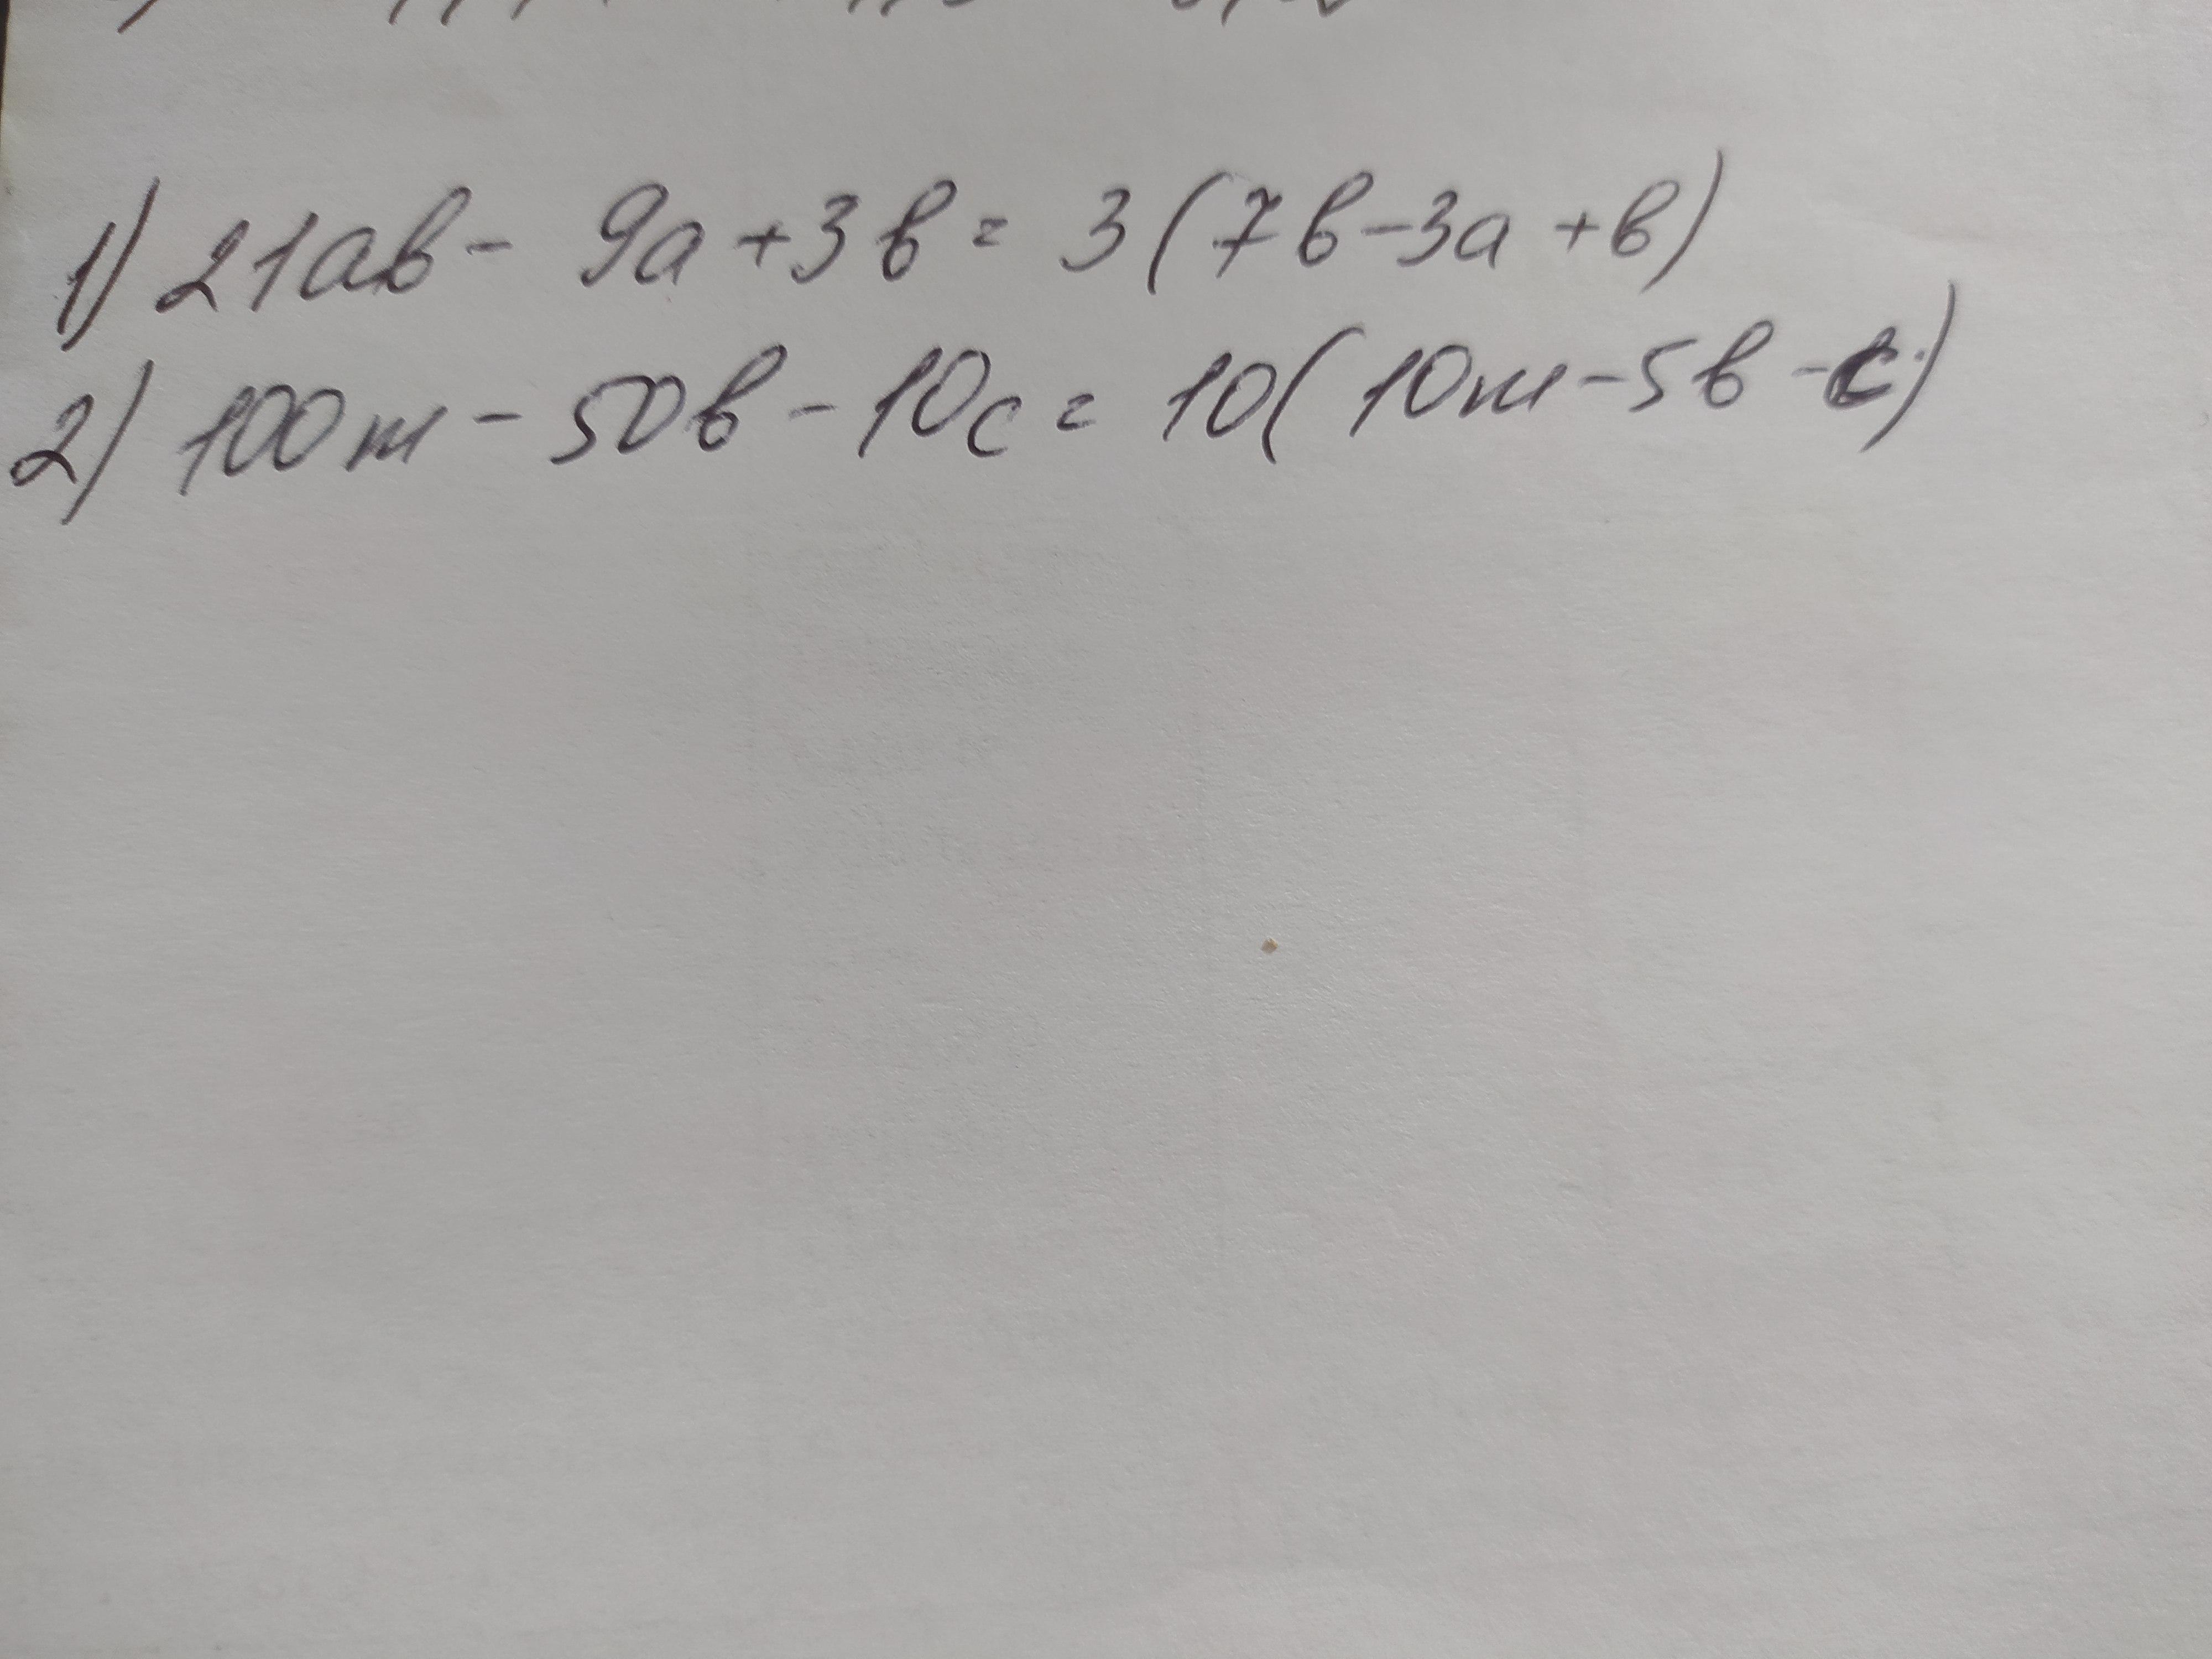 1) 21ab - 9a + 3b = 3(7b - 3a + b)
2) 100m - 50b - 10c = 10(10m - 5b - c)